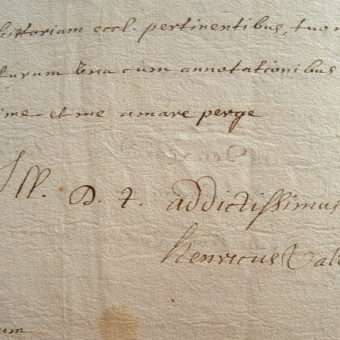 historiam eccl. pertinentibus, tuo
turum una cum annotationibus
ime et me amare perge
Ill. D. t. addictissimus
Henricus Vale
um